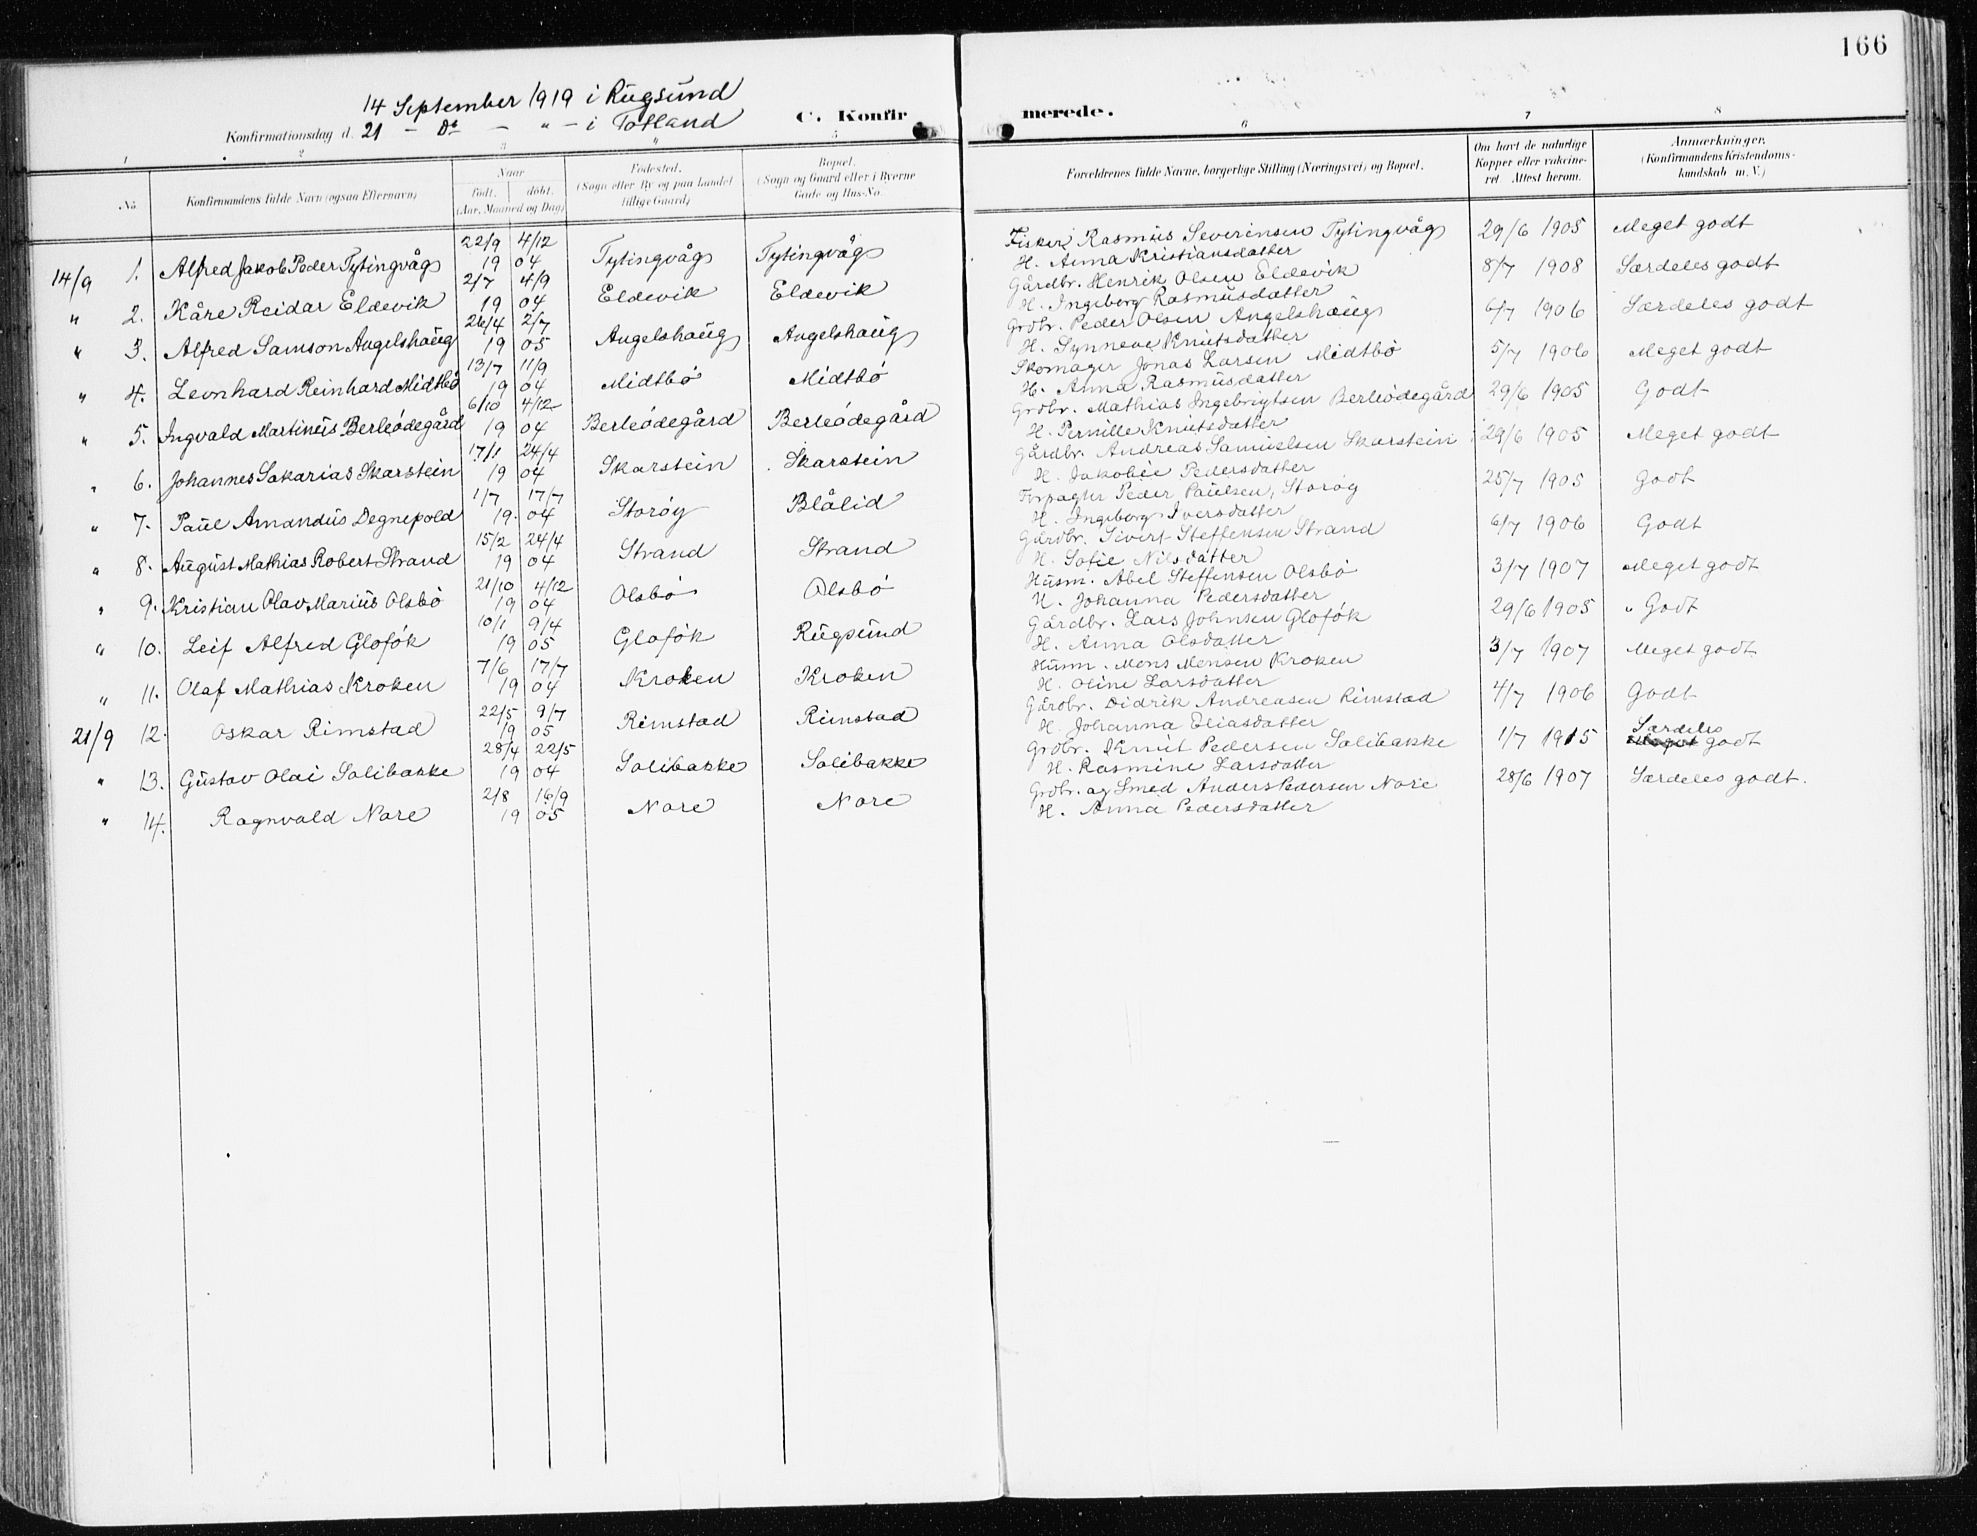 166
14 September 1919 i Rugsund
Konfirmationsdag d. 21 - Do - " - i Totland
C. Konfirmerede.
1 2 3 4 5 6 7 8
No.
Konfirmandens fulde Navn (ogsaa Efternavn)
Naar
født. døbt.
(Aar, Maaned og Dag)
Fødested.
(Sogn eller By og paa Landet
tillige Gaard)
Bopæl.
(Sogn og Gaard eller i Byerne
Gade og Hus-No.
Forældrenes fulde Navne, borgerlige Stilling (Næringsvei) og Bopæl.
Om havt de naturlige
Kopper eller vakcine-
ret Attest herom.
Anmærkninger.
(Konfirmandens Kristendoms-
kundskab m. V.)
14/9 1. Alfred Jakob Peder Tytingvåg 22/9 4/12 19 04 Tytingvåg Tytingvåg Fisker Rasmus Severinsen Tytingvåg 29/6 1905 Meget godt
H. Anna Kristiansdatter
" 2. Kåre Reidar Eldevik 2/7 4/9 19 04 Eldevik Eldevik Gårdbr. Henrik Olsen Eldevik 8/7 1908 Særdeles godt
H. Ingeborg Rasmusdatter
" 3. Alfred Samson Angelshaug 26/4 2/7 19 05 Angelshaug Angelshaug Grdbr. Peder Olsen Angelshaug 6/7 1906 Særdeles godt
H. Synneve Knutsdatter
" 4. Leonhard Reinhard Midtbö 13/7 11/9 19 04 Midtbö Midtbö Skomager Jonas Larsen Midtbö 5/7 1906 Meget godt
H. Anna Rasmusdatter
" 5. Ingvald Martineus Berleödegård 6/10 4/12 19 04 Berleödegård Berleödegård Grdbr. Mathias Ingebrigtsen Berleödegård 29/6 1905 Godt
H. Pernille Knutsdatter
" 6. Johannes Sakarias Skarstein 17/1 24/4 19 04 Skarstein Skarstein Gårdbr. Andreas Samuelsen Skarstein 29/6 1905 Meget godt
H. Jakobee Pedersdatter
" 7. Paul Amandus Degnepold 1/7 17/7 19 04 Storöy Blålid Forpagter Peder Paulsen, Storöy 25/7 1905 Godt
H. Ingeborg Iversdatter
" 8. August Mathias Robert Strand 15/2 24/4 19 04 Strand Strand Gårdbr. Sivert Steffensen Strand 6/7 1906 Godt
H. Sofie Nilsdatter
" 9. Kristian Olav Marius Olsbö 21/10 4/12 19 04 Olsbö Olsbö Husm. Abel Steffensen Olsbö 3/7 1907 Meget godt
H. Johanna Pedersdatter
" 10. Leif Alfred Glofök 10/1 9/4 19 05 Glofök Rugsund Gårdbr. Lars Johnsen Glofök 29/6 1905 " Godt
H. Anna Olsdatter
" 11. Olaf Mathias Kroken 7/6 17/7 19 04 Kroken Kroken Husm. Mons Monsen Kroken 3/7 1907 Meget godt
H. Oline Larsdatter
21/9 12. Oskar Rimstad 22/5 9/7 19 05 Rimstad Rimstad Gårdbr. Didrik Andreasen Rimstad 4/7 1906 Godt
H. Johanna Eliasdatter
" 13. Gustav Olai Solibakke 28/4 22/5 19 04 Solibakke Solibakke Grdbr. Knut Pedersen Solibakke 1/7 1915 Særdeles godt
H. Rasmine Larsdatter
" 14. Ragnvald Nore 2/8 16/9 19 05 Nore Nore Grdbr. og Smed Anders Pedersen Nore 28/6 1907 Særdeles godt.
H. Anna Pedersdatter